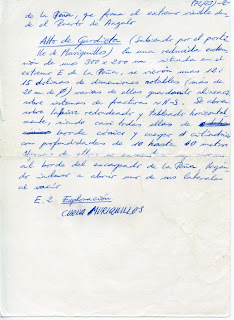 de la Peña, que forma el extremo
de el Puerto de Angulo
Alto de Gurdieta (Subiendo por el portillo
de Muriquillos) En una reducida exten-
sión de unos 300 x 200 m situada en el
extremo E de la Peña, se visión unas 12 ó
15 dolinas de dimensiones notables (más de
20 m de Ø) varias de ellas guardando alineación
sobre sistemas de fracturas N-S. Se abren
sobre lapiaz redondeado y tableado horizontal
mente, siendo casi todas ellas de
borde cónico, y cuerpo cilíndrico
con profundidades de 10 hasta 40 metros
de ellas se encuentra
al borde del escarpado de la Peña llegan
do incluso a abrir uno de sus laterales
al vacío
E.2 Exploración
CUEVA MURIQUILLOS